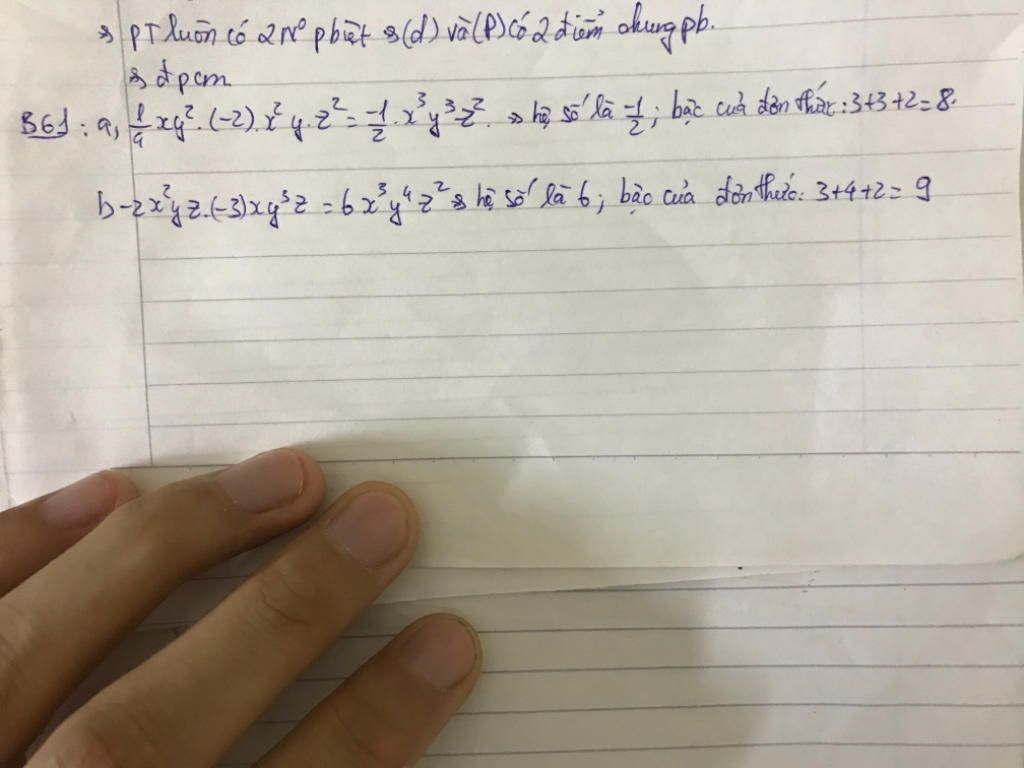 => PT luôn có 2 N⁰ pbiệt => (d) và (P) có 2 điểm chung pb.
=> đpcm
B61: a, 1/4 xy². (-2). x² y. z² = -1/2 . x³ y³ z². => hệ số là -1/2; bậc của đơn thức: 3+3+2=8.
b -2x²yz.(-3)xy³z = 6x³y⁴z² => hệ số là 6; bậc của đơn thức: 3+4+2=9